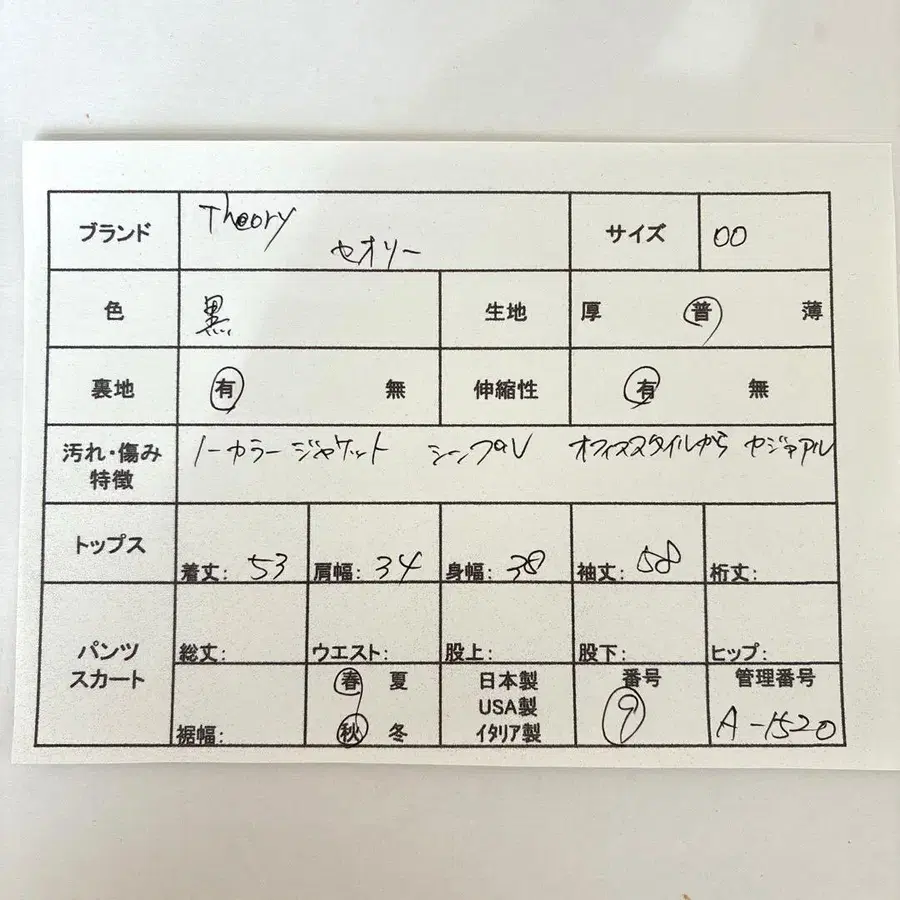 ブランド Theory セオリー サイズ 00
色 黒 生地 厚 普 薄
裏地 有 無 伸縮性 有 無
汚れ・傷み 特徴 ノーカラージャケット シンプル オフィススタイルから カジュアル
トップス 着丈: 53 肩幅: 34 身幅: 38 袖丈: 58 裄丈:
パンツ スカート 総丈: ウエスト: 股上: 股下: ヒップ:
裾幅: 春 夏 秋 冬 日本製 USA製 イタリア製 番号 9 管理番号 A-1520